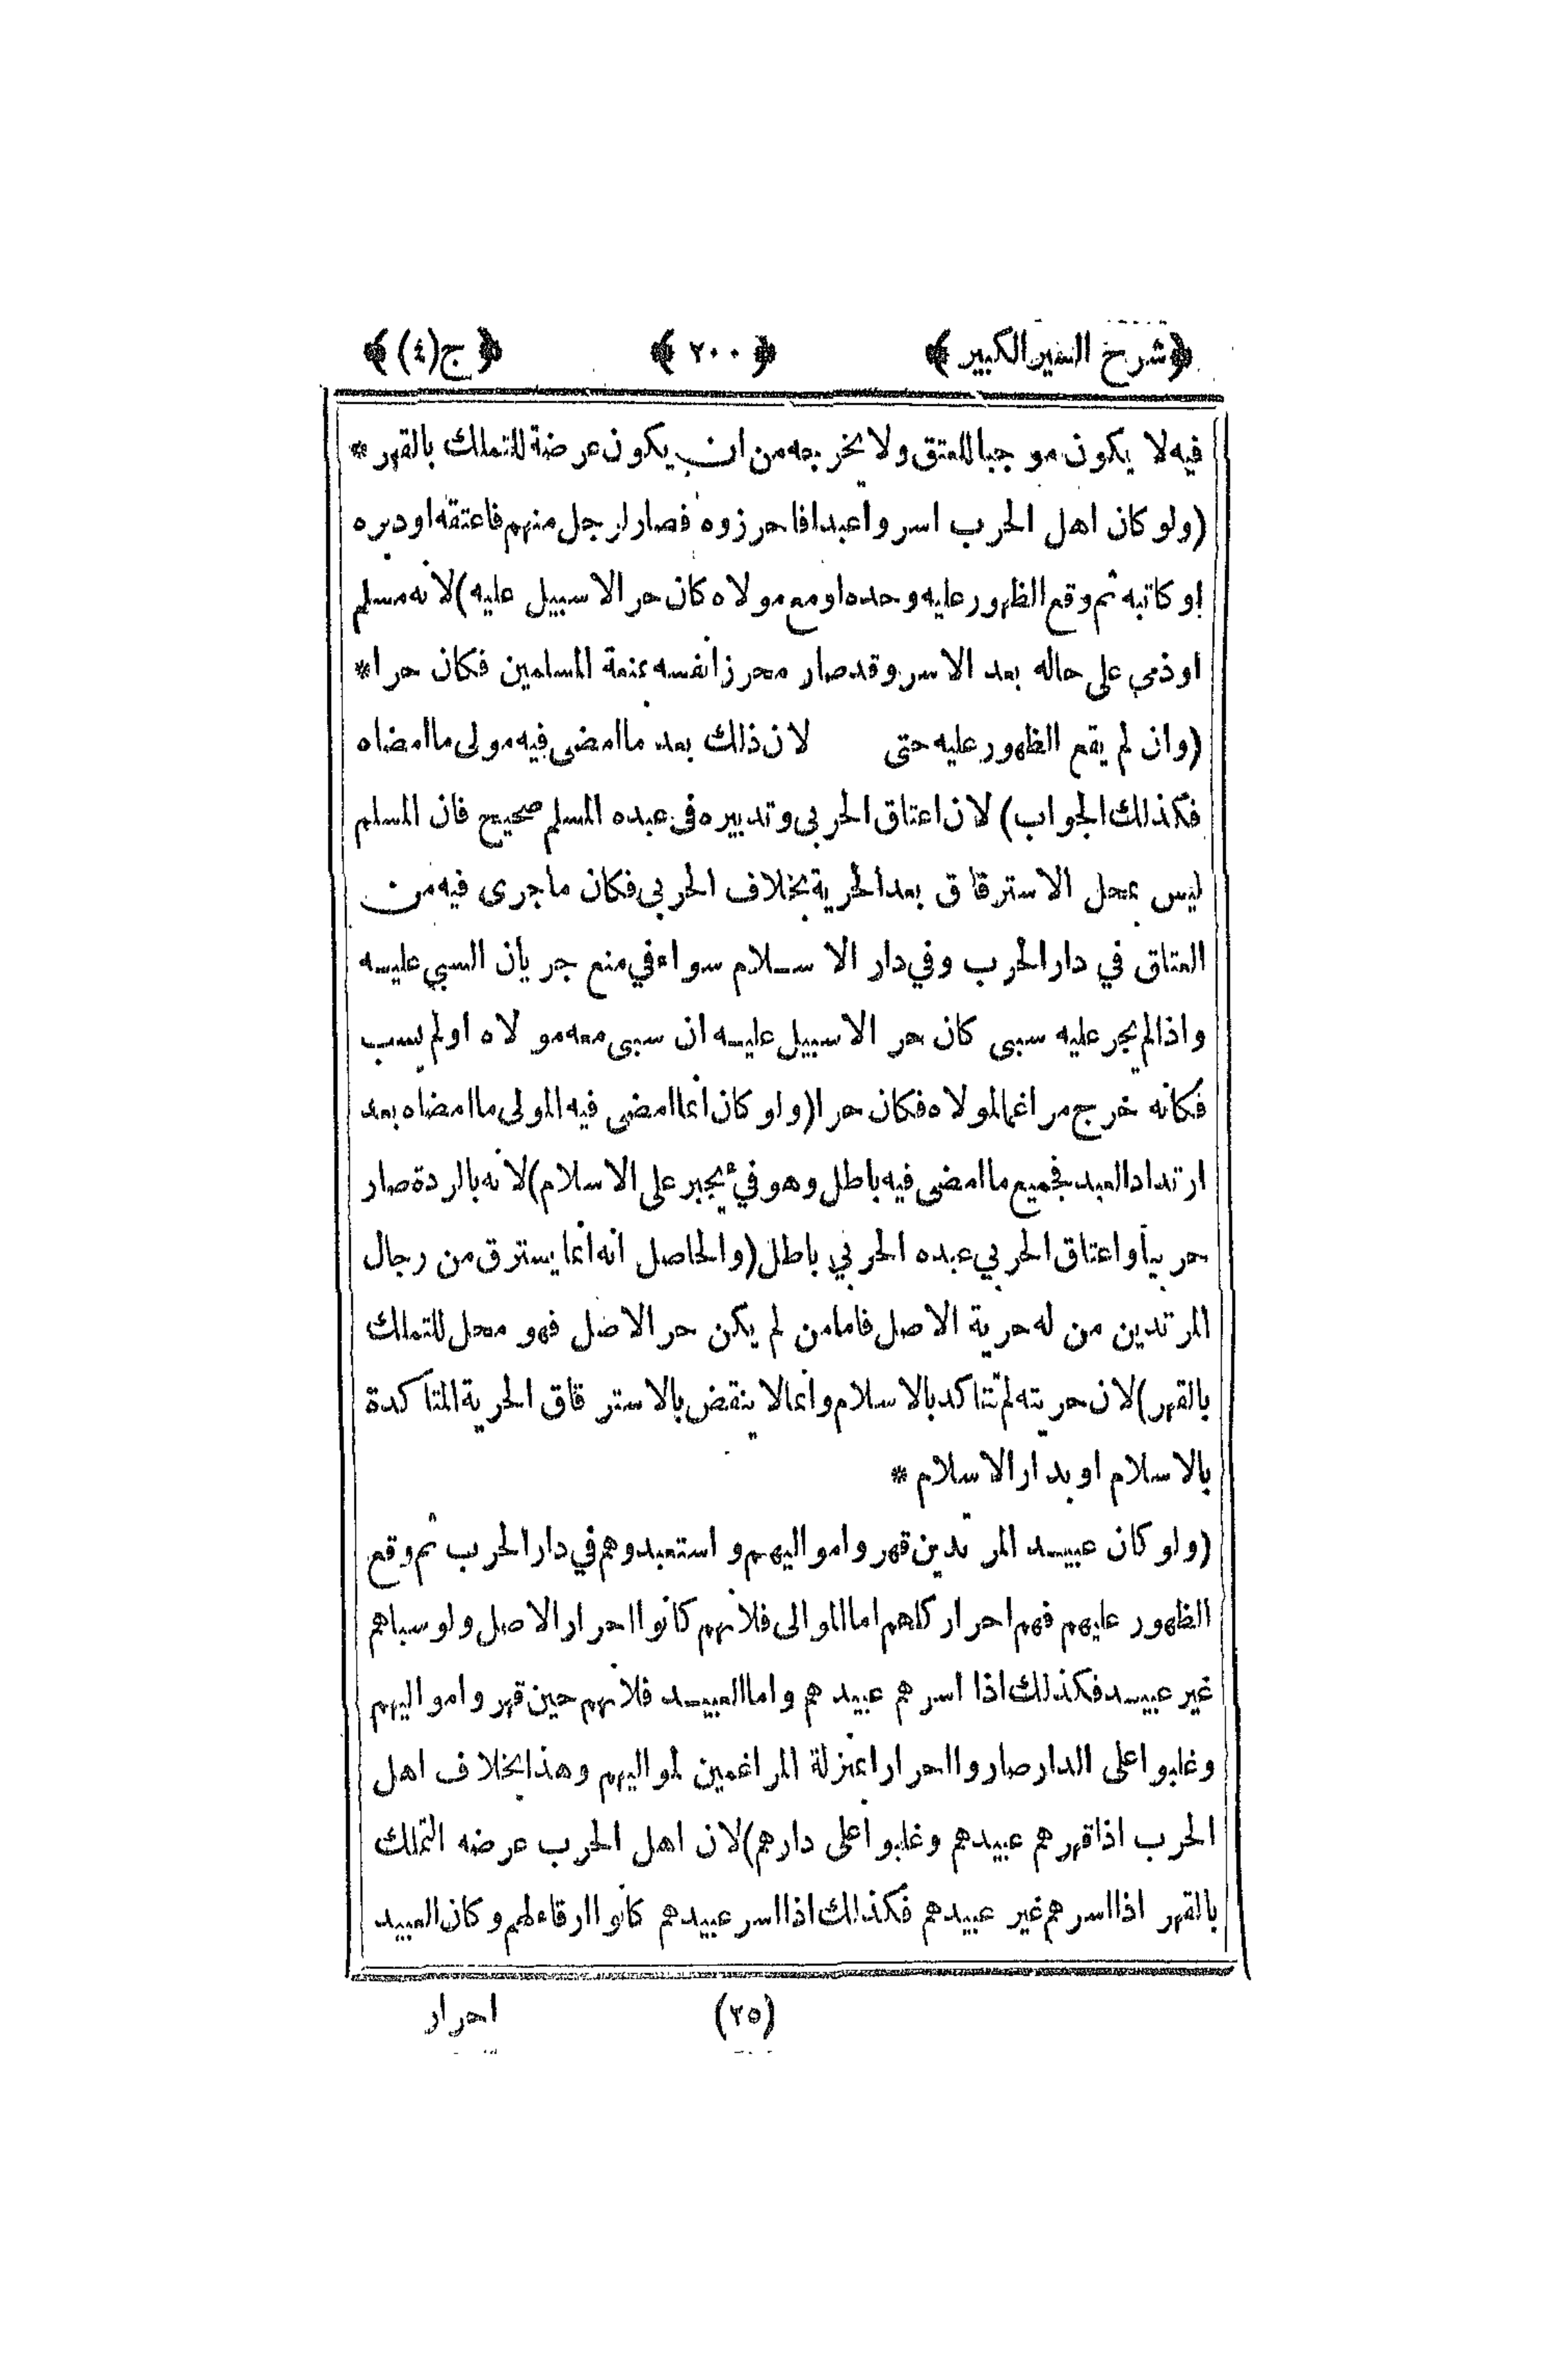 ﴿شرح السير الكبير﴾ ﴿٢٠٠﴾ ﴿ج(٤)﴾
فيه لا يكون موجبا للعتق ولا يخرجه من ان يكون عرضة للتملك بالقهر *
(ولو كان اهل الحرب اسروا عبدا فاحرزوه فصار لرجل منهم فاعتقه او دبره
او كاتبه ثم وقع الظهور عليه وحده او مع مولاه كان حرا لا سبيل عليه) لانه مسلم
او ذمي على حاله بعد الاسر وقد صار محرزا نفسه بمنعة المسلمين فكان حرا *
(وان لم يقع الظهور عليه حتى لان ذلك بعد ما امضى فيه مولى ما امضاه
فكذلك الجواب) لان اعتاق الحربى وتدبيره فى عبده المسلم صحيح فان المسلم
ليس بمحل الاسترقاق بعد الحرية بخلاف الحربى فكان ما جرى فيه من
العتاق في دار الحرب وفي دار الاسلام سواء في منع جريان السبي عليه
واذا لم يجر عليه سبى كان حرا لا سبيل عليه ان سبى معه مولاه او لم يسب
فكانه خرج مراغما لمولاه فكان حرا (ولو كان انما امضى فيه المولى ما امضاه بعد
ارتداد العبد فجميع ما امضى فيه باطل وهو فيء يجبر على الاسلام) لانه بالردة صار
حربيا واعتاق الحربي عبده الحربي باطل (والحاصل انه انما يسترق من رجال
المرتدين من له حرية الاصل فاما من لم يكن حر الاصل فهو محل للتملك
بالقهر) لان حريته لم تتاكد بالاسلام وانما لا ينقض بالاسترقاق الحرية المتاكدة
بالاسلام او بدار الاسلام *
(ولو كان عبيد المرتدين قهروا مواليهم واستعبدوهم في دار الحرب ثم وقع
الظهور عليهم فهم احرار كلهم اما الموالى فلانهم كانوا احرار الاصل ولو سباهم
غير عبيد فكذلك اذا اسرهم عبيدهم واما العبيد فلانهم حين قهروا مواليهم
وغلبوا على الدار صاروا احرارا بمنزلة المراغمين لمواليهم وهذا بخلاف اهل
الحرب اذا قهرهم عبيدهم وغلبوا على دارهم) لان اهل الحرب عرضه التملك
بالقهر اذا اسرهم غير عبيدهم فكذلك اذا اسر عبيدهم كانوا ارقاء لهم وكان العبيد
(٢٥) احرار